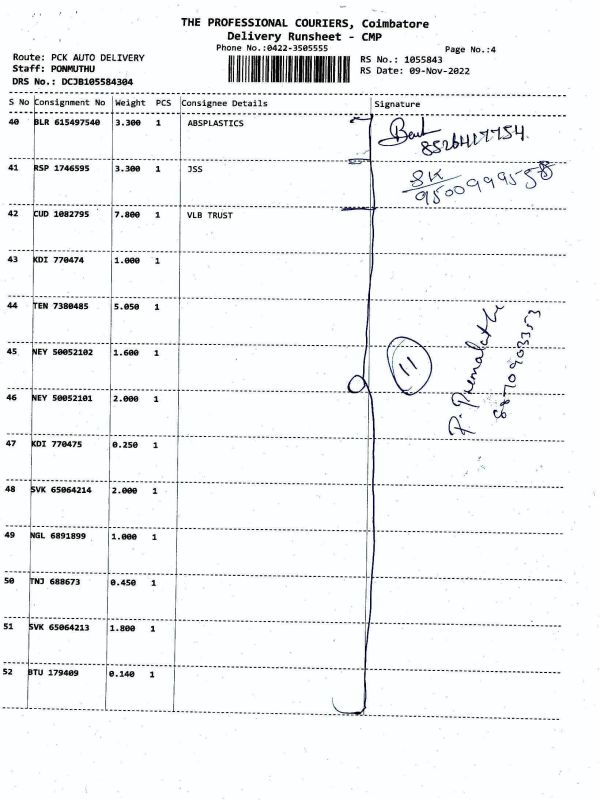 THE PROFESSIONAL COURIERS, Coimbatore
Delivery Runsheet - CMP
Phone No.:0422-3505555
Page No.:4
Route: PCK AUTO DELIVERY
RS No.: 1055843
Staff: PONMUTHU
RS Date: 09-Nov-2022
DRS No.: DCJB105584304
S No Consignment No Weight PCS Consignee Details Signature
40 BLR 615497540 3.300 1 ABSPLASTICS
8526417754
41 RSP 1746595 3.300 1 JSS
SK
9500999558
42 CUD 1082795 7.800 1 VLB TRUST
43 KDI 770474 1.000 1
44 TEN 7380485 5.050 1
45 NEY 50052102 1.600 1
11
P. Premalatha
8870903353
46 NEY 50052101 2.000 1
47 KDI 770475 0.250 1
48 SVK 65064214 2.000 1
49 NGL 6891899 1.000 1
50 TNJ 688673 0.450 1
51 SVK 65064213 1.800 1
52 BTU 179409 0.140 1